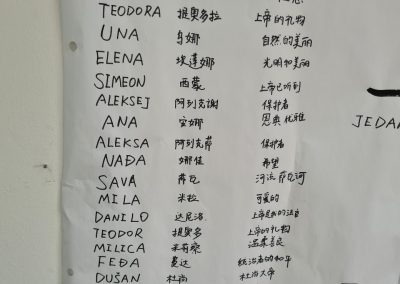 TEODORA 提奥多拉 上帝的礼物
UNA 乌娜 自然的美丽
ELENA 埃莲娜 光明和美丽
SIMEON 西蒙 上帝已听到
ALEKSEJ 阿列克谢 保护者
ANA 安娜 恩典优雅
JEDA
ALEKSA 阿列克萨 保护者
NAĐA 娜佳 希望
SAVA 萨瓦 河流 萨瓦河
MILA 米拉 可爱的
DANILO 达尼洛 上帝是我的法官
TEODOR 提奥多 上帝的礼物
MILICA 米莉察 温柔善良
FEĐA 费达 统治者的和平
DUŠAN 杜尚 杜尚大帝